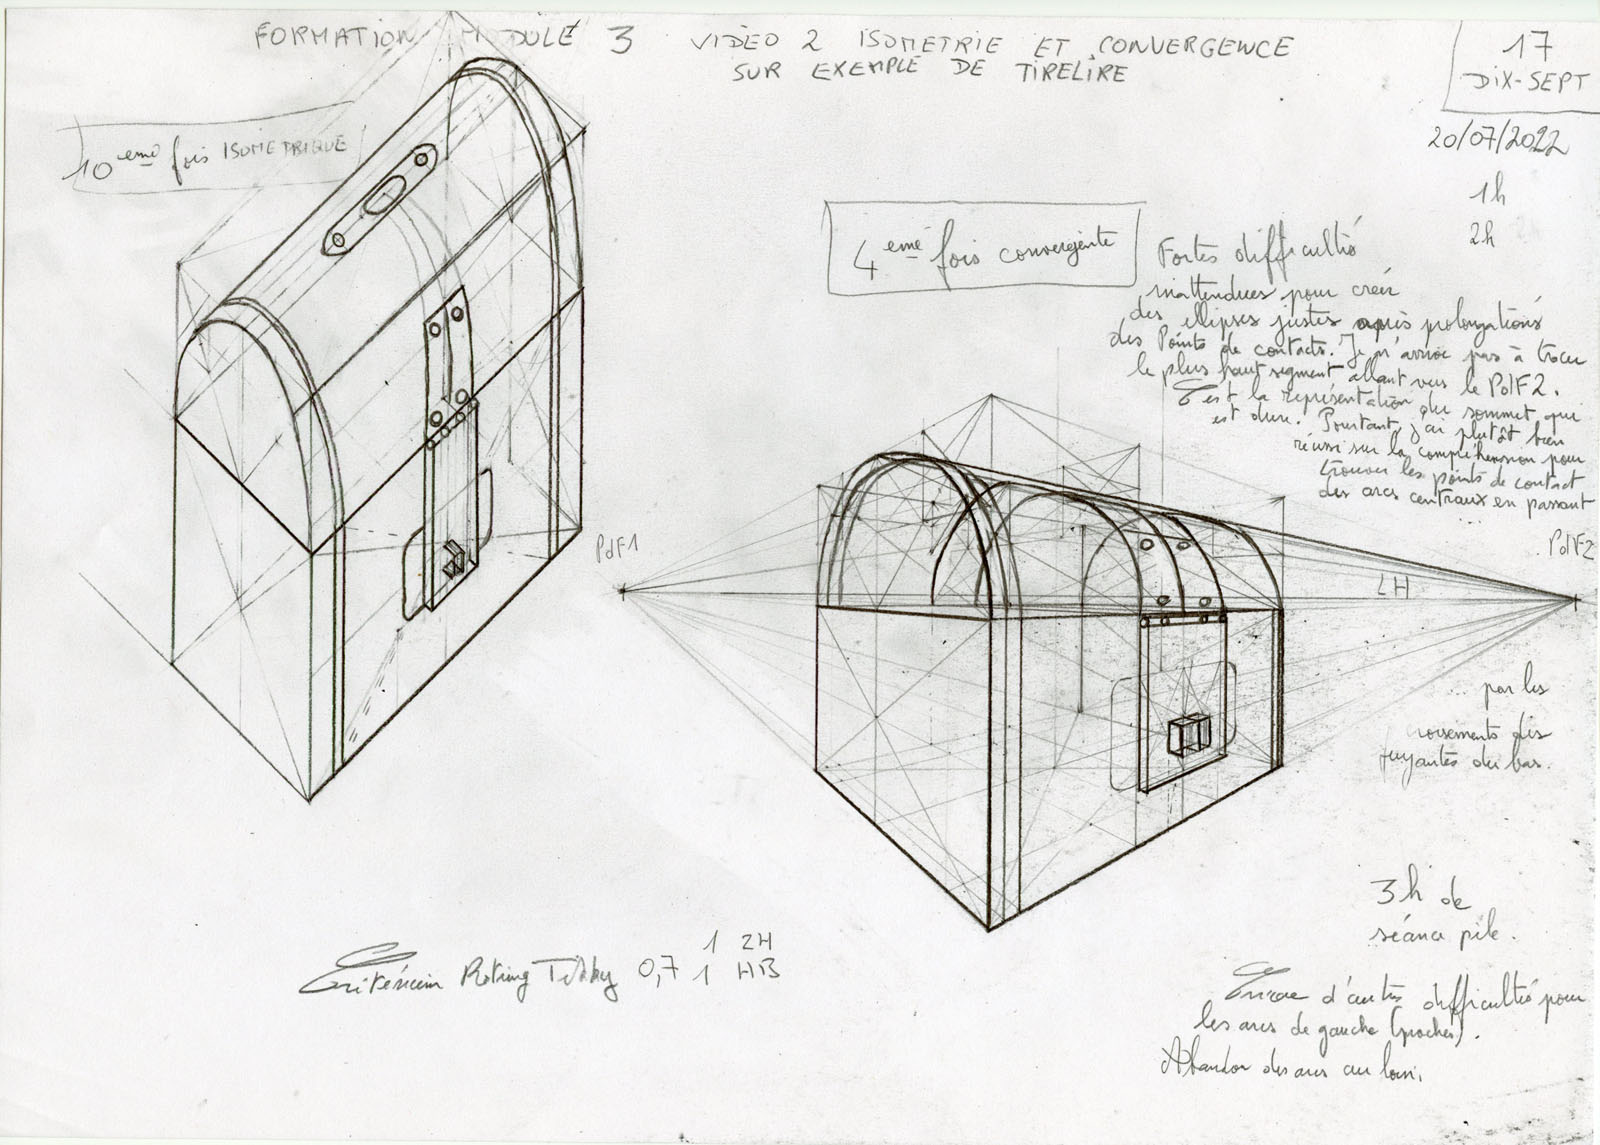 FORMATION MODULE 3 VIDÉO 2 ISOMETRIE ET CONVERGENCE
SUR EXEMPLE DE TIRELIRE
17
DIX-SEPT
20/07/2022
1h
2h
10 eme fois ISOMETRIQUE
4 eme fois convergente
Fortes difficultés
inattendues pour créer
des ellipses justes après prolongations
des Points de contacts. Je n'arrive pas à tracer
le plus haut segment allant vers le PdF2.
C'est la représentation du sommet qui
est dure. Pourtant, j'ai plutôt bien
réussi sur la compréhension pour
trouver les points de contact
des arcs centraux en passant
PdF1
PdF2
LH
par les
croisements des
fuyantes du bas.
3h de
séance pile.
Critérium Rotring Tikky 0,7 1 2H
1 HB
Encore d'autres difficultés pour
les arcs de gauche (proches).
Abandon des arcs au loin.